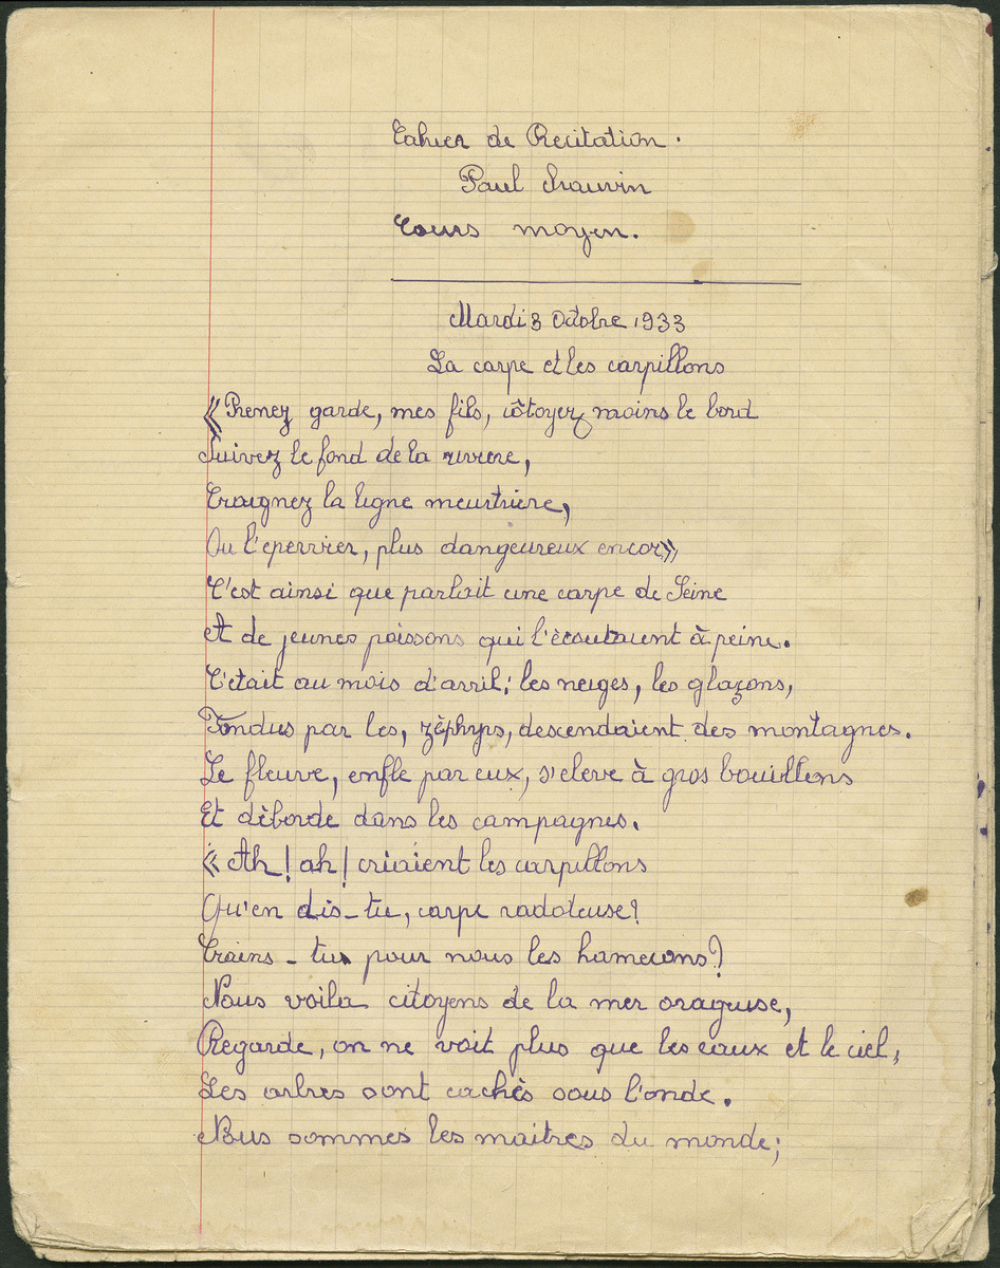 Cahier de Recitation.
Paul Chauvin
Cours moyen.
Mardi 3 Octobre 1933
La carpe et les carpillons
« Prenez garde, mes fils, côtoyez moins le bord
Suivez le fond de la riviere,
Craignez la ligne meurtrière,
Ou l'epervier, plus dangeureux encor »
C'est ainsi que parlait une carpe de Seine
Et de jeunes poissons qui l'écoutaient à peine.
C'était au mois d'avril; les neiges, les glaçons,
Fondus par les, zéphyrs, descendaient des montagnes.
Le fleuve, enfle par eux, s'eleve à gros bouillons
Et déborde dans les campagnes.
« Ah! ah! criaient les carpillons
Qu'en dis-tu, carpe radoteuse?
Crains-tu pour nous les hamecons?
Nous voila citoyens de la mer orageuse,
Regarde, on ne voit plus que les eaux et le ciel,
Les arbres sont cachés sous l'onde.
Nous sommes les maitres du monde;